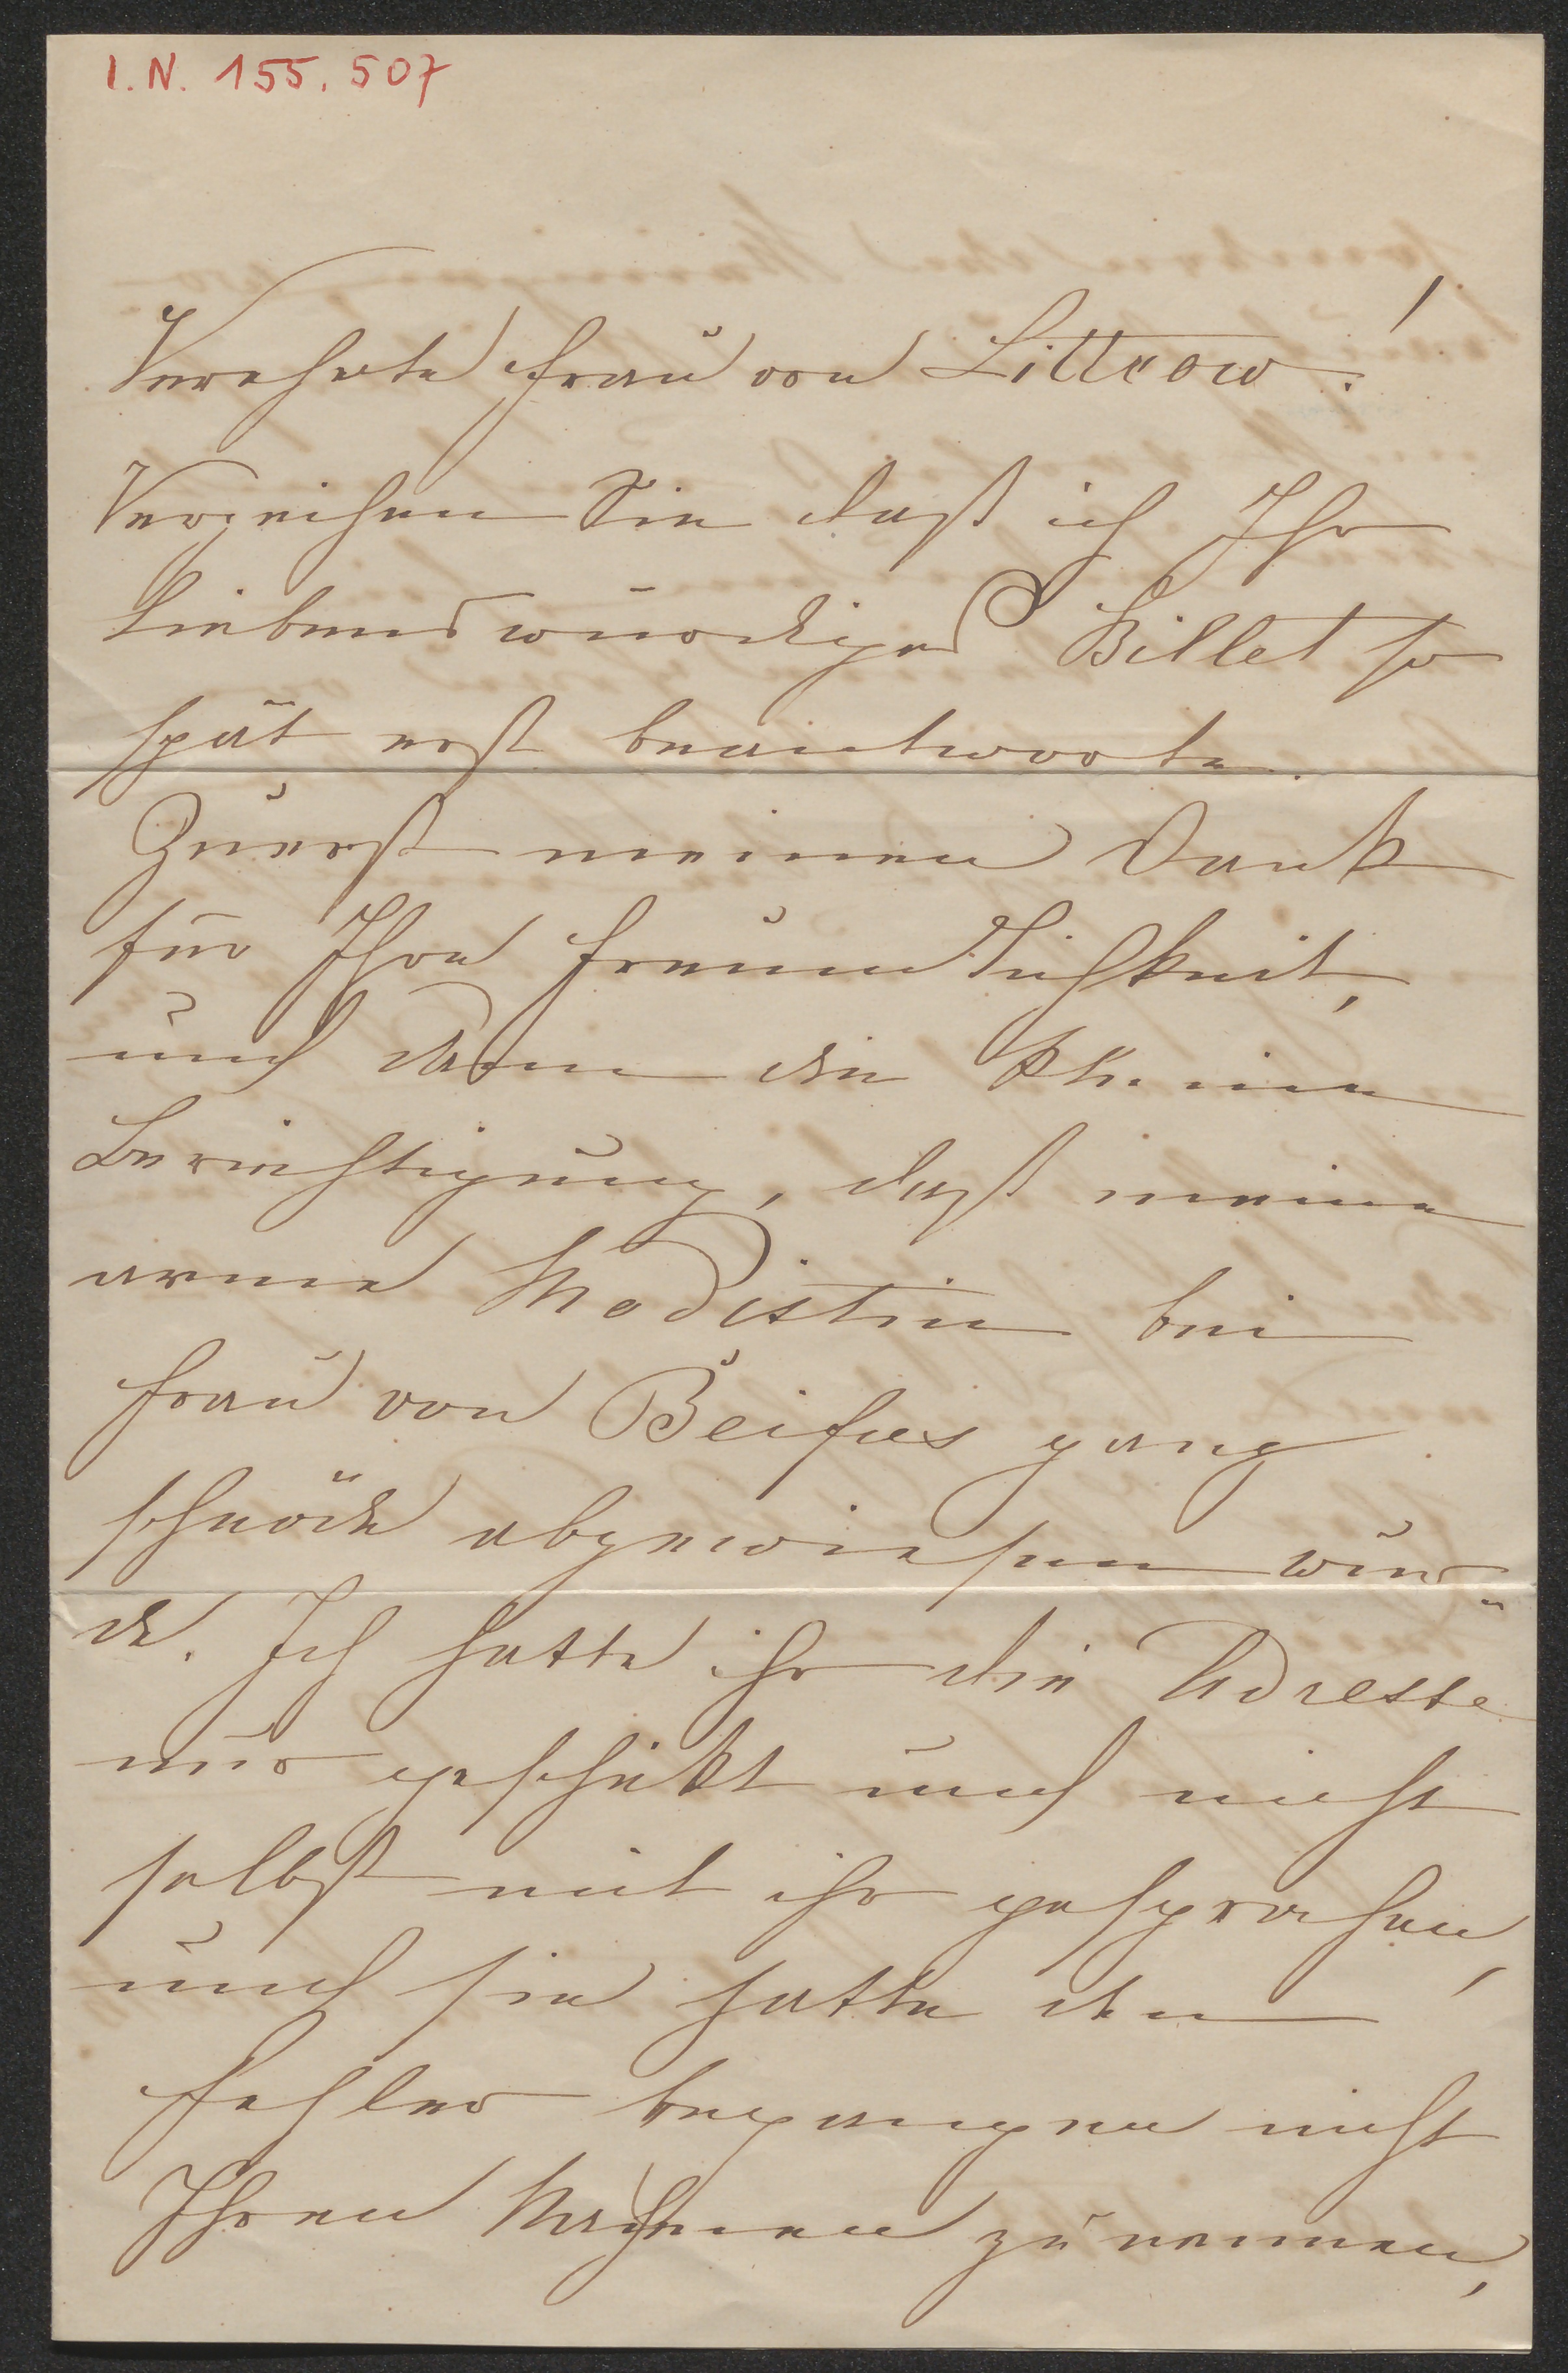 I.N. 155.507
Verehrte Frau von Littrow!
Verzeihen Sie daß ich Ihr
liebenswürdiges Billet so
spät erst beantworte.
Zuerst meinen Dank
für Ihre Freundlichkeit,
und dann die kleine
Berichtigung, daß meine
arme Modistin bei
Frau von Beifus ganz
schnöde abgewiesen wur=
de. Ich hatte ihr die Adresse
nur geschickt und nicht
selbst mit ihr gesprochen,
und sie hatte den
Fehler begangen nicht
Ihren Nahmen zu nennen,